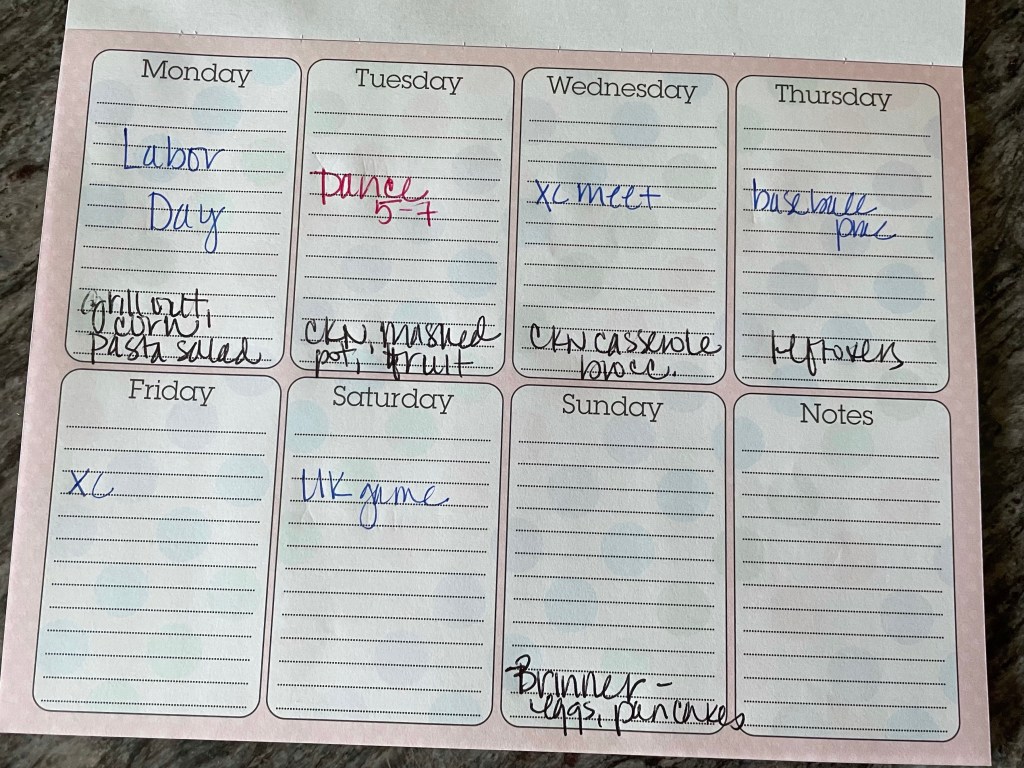 Monday
Labor
Day
Grill out,
corn,
pasta salad
Tuesday
Dance
5-7
CKN, mashed
pot, fruit
Wednesday
XC meet
CKN casserole
brocc.
Thursday
baseball
prac
Leftovers
Friday
XC
Saturday
UK game
Sunday
Brinner -
eggs, pancakes
Notes